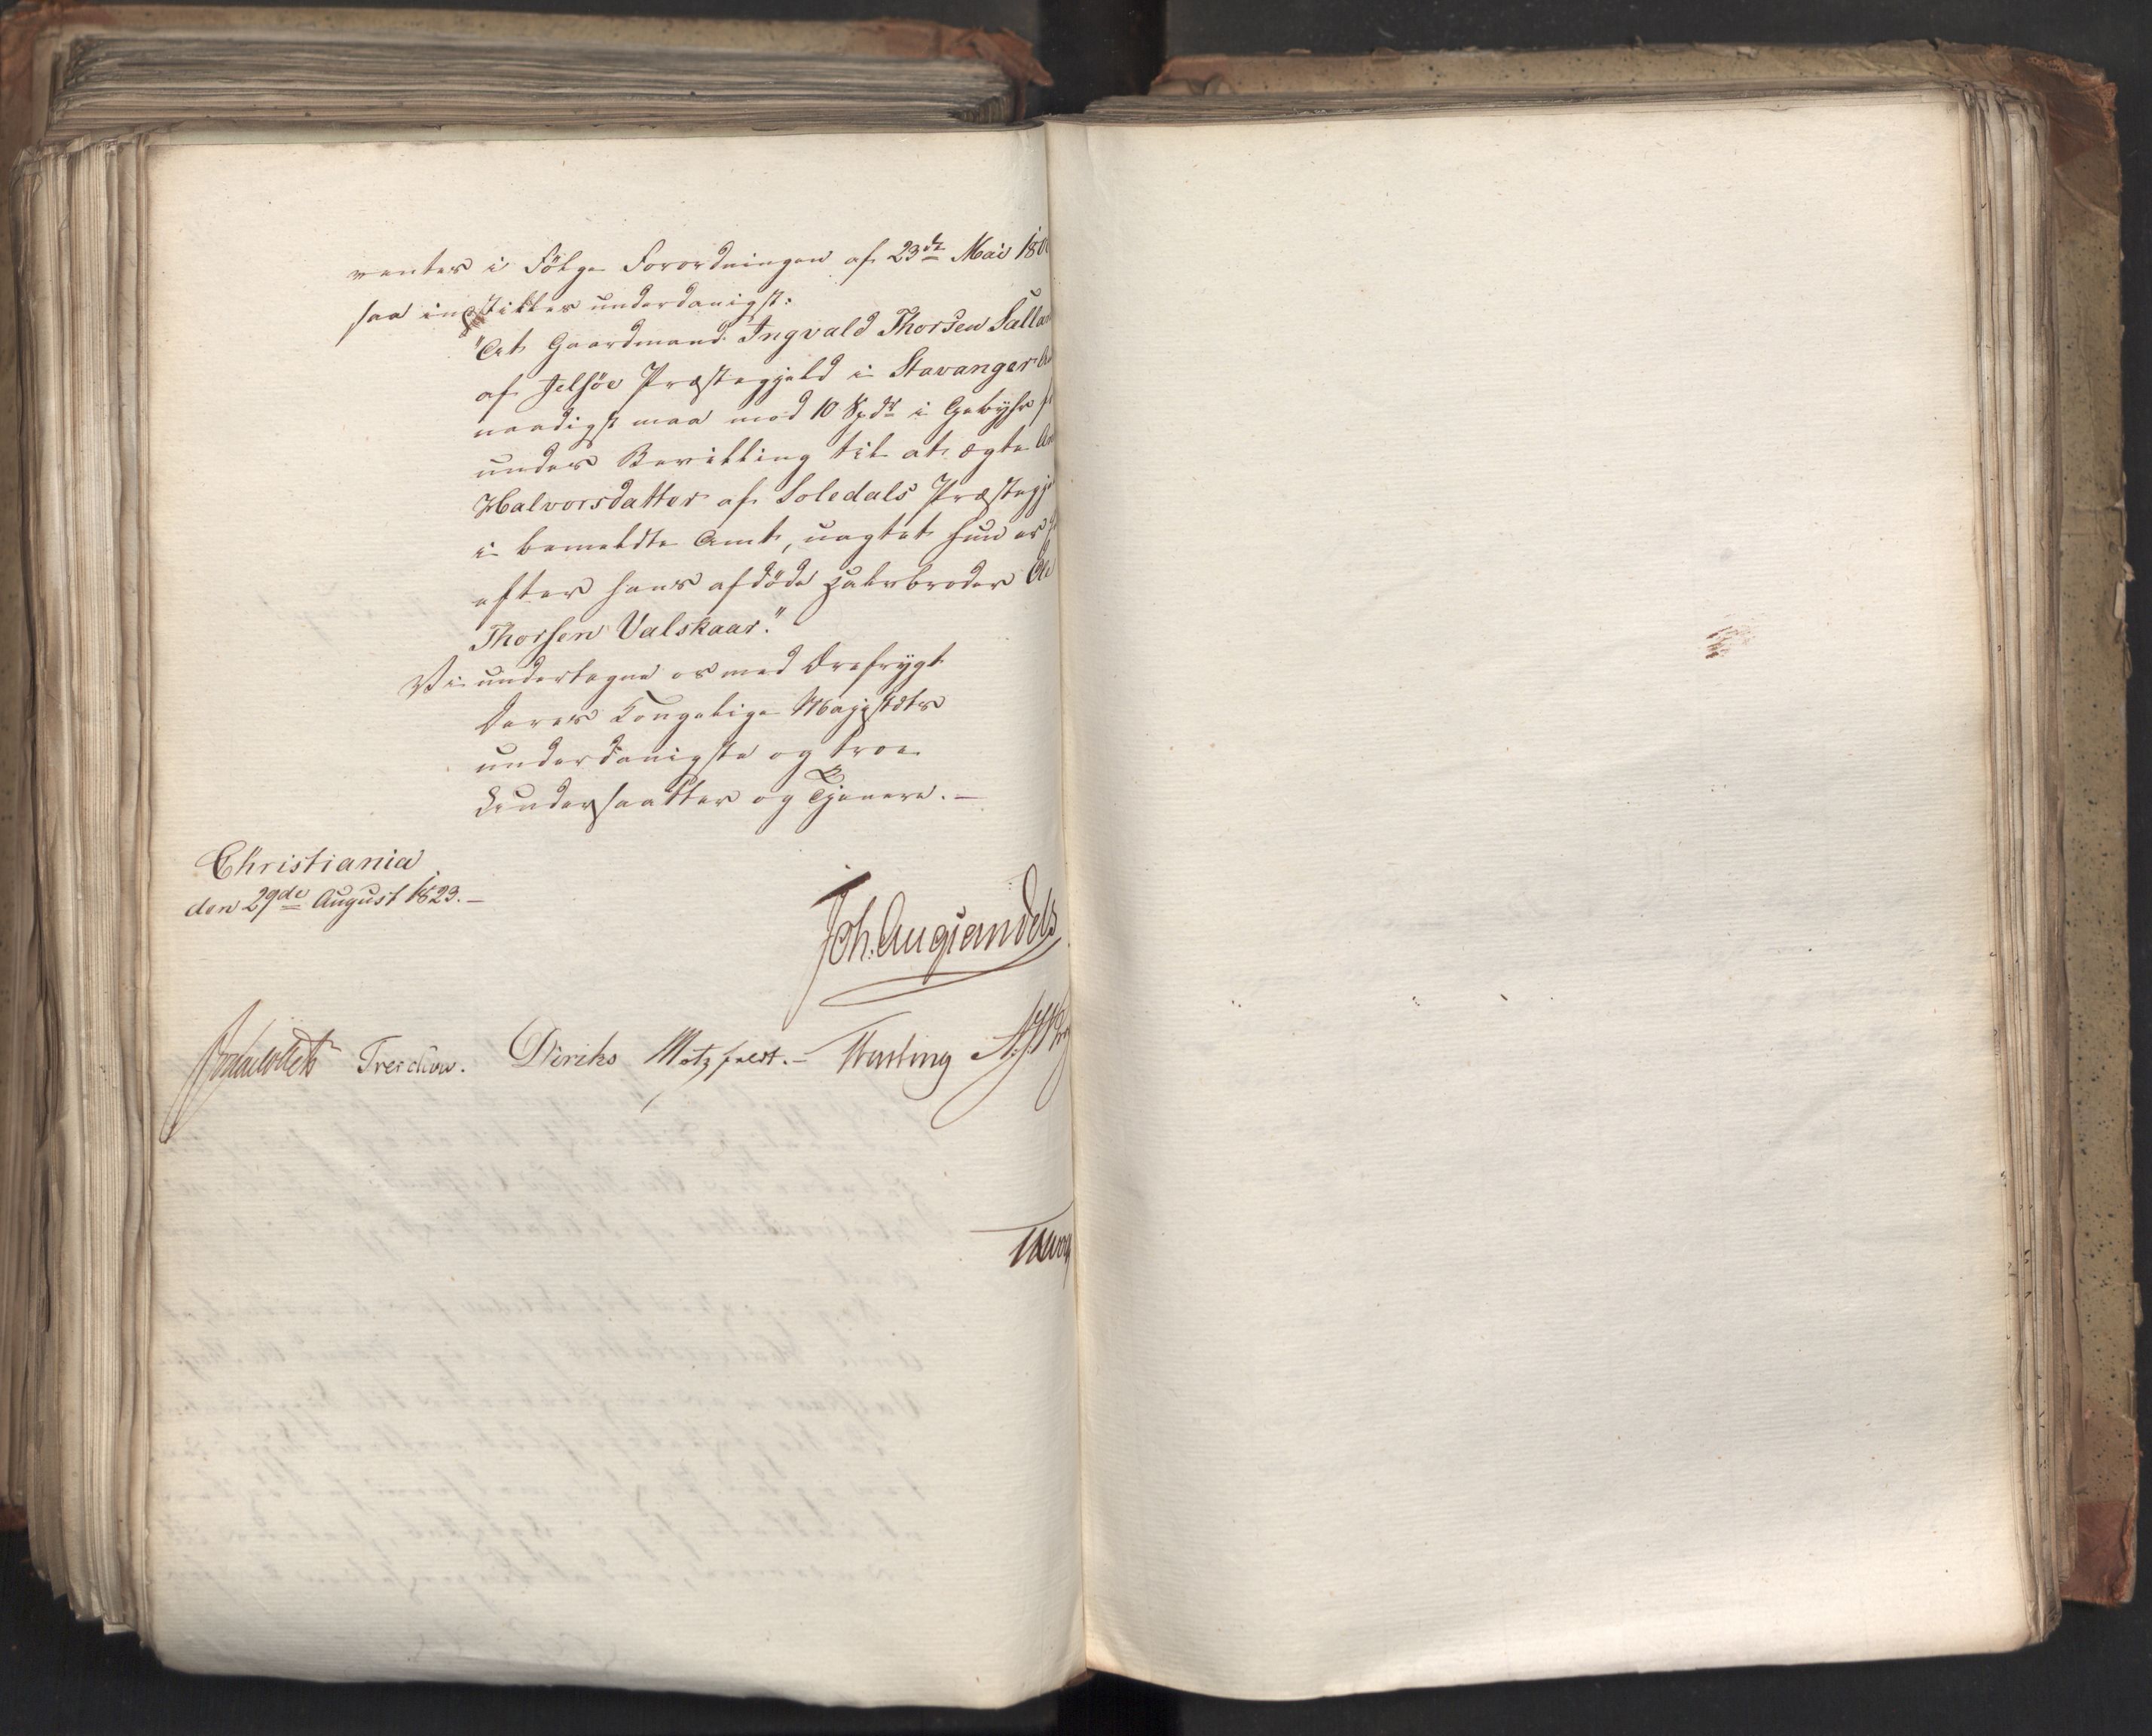 ventes i Følge Forordningen af 23de Mai 180
saa indstilles underdanigst:
"At Gaardmand Ingvald Thorsen Salla
af Jelsøe Præstegjeld i Stavanger A
naadigst maa mod 10 Spdr i Gebyhr
under Bevilling til at ægte An
Halvorsdatter af Soledals Præstegj
i bemeldte Amt, uagtet hun er
efter hans afdøde Halvbroder Ole
Thorsen Valskaar."
Vi undertegne os med Ærefrygt
Deres Kongelige Majestæts
underdanigste og troe
Undersaatter og Tjenere. —
Christiania
den 29de August 1823. —
Joh. Aug: Sandels
Treschow. Diriks Motzfeldt. —